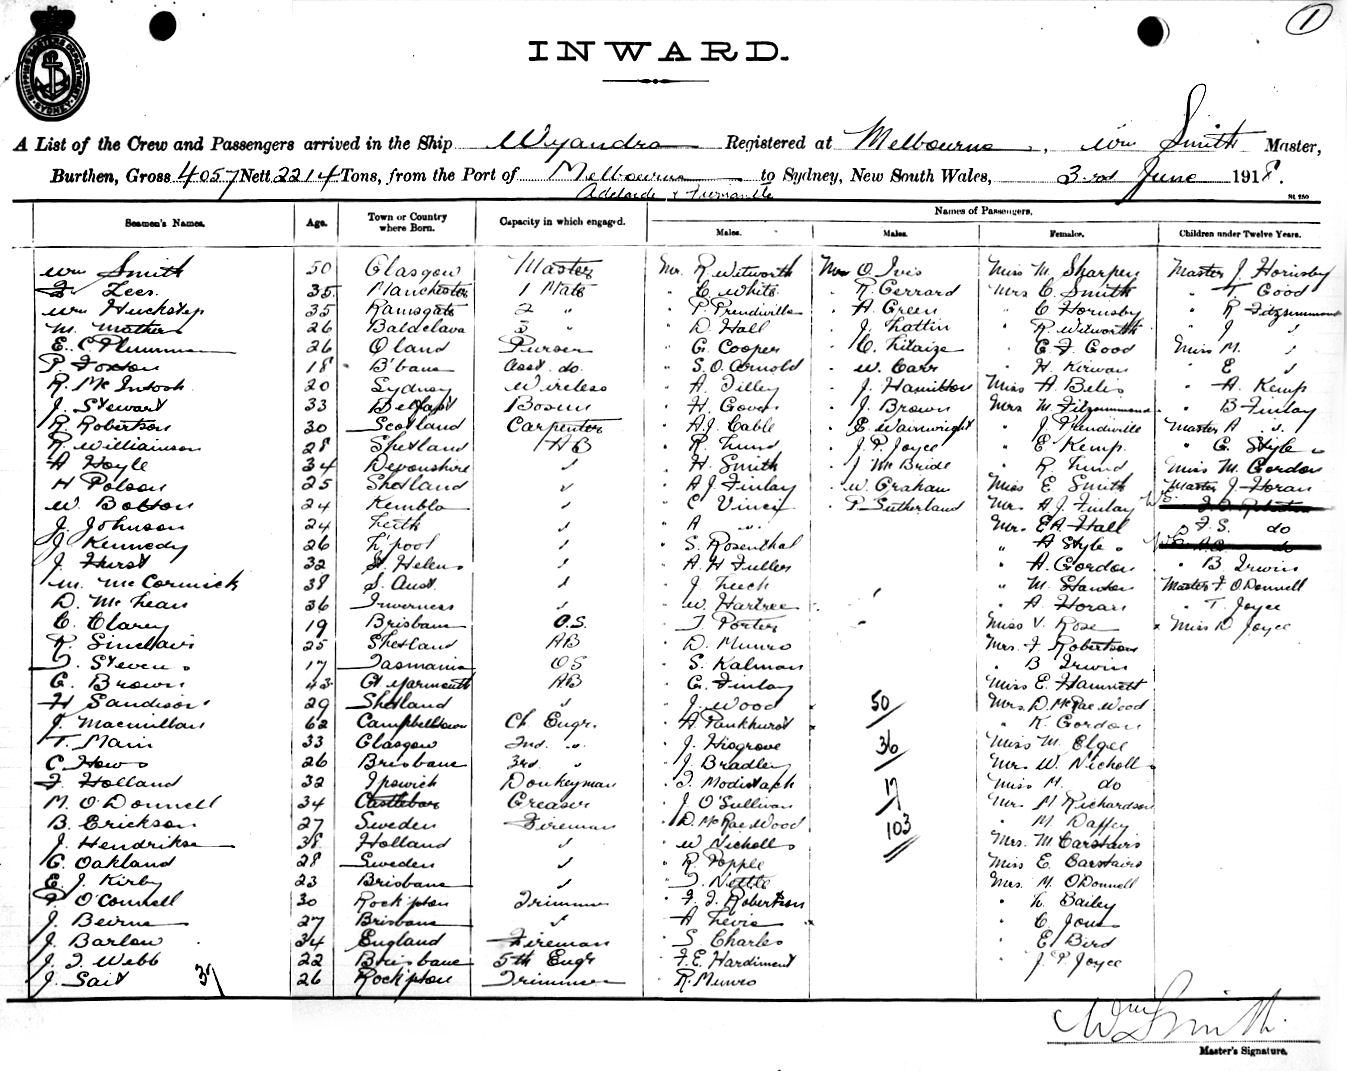 1
SHIPPING MASTERS DEPARTMENT SYDNEY
INWARD.
A List of the Crew and Passengers arrived in the Ship Wyandra Registered at Melbourne, Wm Smith Master,
Burthen, Gross 4057 Nett 2214 Tons, from the Port of Melbourne to Sydney, New South Wales, 3rd June 1918.
Adelaide & Fremantle
St. 250
Names of Passengers.
Seamen's Names. Age. Town or Country where Born. Capacity in which engaged. Males. Males. Females. Children under Twelve Years.
Wm Smith 50 Glasgow Master Mr. R. Witworth Mr O. Ivis Miss M. Sharpey Master J. Hornsby
Lees 35 Manchester 1 Mate " C. White " R. Gerrard Mrs C. Smith " T Good
Wm Huckstep 35 Ramsgate 2 " " P. Prendiville " H. Green " C Hornsby " R Fitzsimmons
M. Mathers 26 Baldclava 3 " " D. Hall " J. Lattin " R. Witworth " J "
E. C. Plumman 26 Oland Purser " G. Cooper " C. Litaize " E. F. Good Miss M. "
P. Foxton 18 B'bane Asst do. " S. O. Arnold " W. Carr " H. Kirwan " E "
R. McIntosh 20 Sydney Wireless " A. Tilley " J. Hamilton Miss A. Betis " A. Kemp
J. Stewart 33 Belfast Bosun " H. Gover " J. Brown Mrs M. Fitzsimmons " B Finlay
R. Robertson 30 Scotland Carpenter " A.J. Cable " E. Wainwright " J. Prendiville Master A "
R. Williamson 28 Shetland AB " R. Lund " J. P. Joyce " E Kemp " G. Style
A Hoyle 34 Devonshire " " H. Smith " J. McBride " R. Lund Miss M. Gordon
H Polson 25 Shetland " " A J Finlay " W. Graham Miss E Smith Master J. Horan
W. Bolton 24 Kembla " " C Vincy " P Sutherland Mrs. A J. Finlay
J. Johnson 24 Leith " " A " Mrs. E A Hall " F. S. do
J. Kennedy 26 L'pool " " S. Rosenthal " A Style do
J. Hurst 32 St. Helens " " A. H Fuller " A. Gordon " B. Irwin
M. McCormick 38 S. Aust. " " J. Leech " M. Stanton Master F O'Donnell
D. McLean 36 Inverness " " W. Hartree " A Horan " T. Joyce
C. Clarey 19 Brisbane O.S. " T Porter Miss V. Rose Miss D Joyce
R. Sinclair 25 Shetland AB " D. Munro Mrs. F. Robertson
Steven 17 Tasmania OS " S. Kalman " B Irwin
G. Brown 43 Gt Yarmouth AB " G. Finlay Miss E. Hamnett
H Sandison 29 Shetland " " J. Wood 50 Mrs. D. McRae Wood
J. Macmillan 62 Campbeltown Ch Engr. " A Pankhurst " K. Gordon
T. Main 33 Glasgow 2nd. " " J. Hisgrove 36 Miss M. Elgee
C Hows 26 Brisbane 3rd. " " J. Bradley Mrs. W. Nicholls
F. Holland 32 Ipswich Donkeyman " Modistach 17 Miss M. do
M. O'Donnell 34 Castlebar Greaser " J. O'Sullivan Mrs. M Richardson
B. Erickson 27 Sweden Fireman " D. McRae Wood 103 " M. Daffey
J. Hendrikse 38 Holland " " W Nicholls Mrs. M. Carstairs
C. Oakland 28 Sweden " " R. Popple Miss E. Carstairs
E. J. Kirby 23 Brisbane " " Nettle Mrs. M. O'Donnell
O'Connell 30 Rock'pton Trimmer " F. J. Robertson " L. Bailey
J. Beirne 27 Brisbane " " A Levie " C Jones
J. Barlow 34 England Fireman " S. Charles " E. Bird
J. J. Webb 22 Brisbane 5th Engr " F. E. Hardiment " J. P. Joyce
J. Sait 37 26 Rock'pton Trimmer " R. Munro
Wm Smith.
Master's Signature.